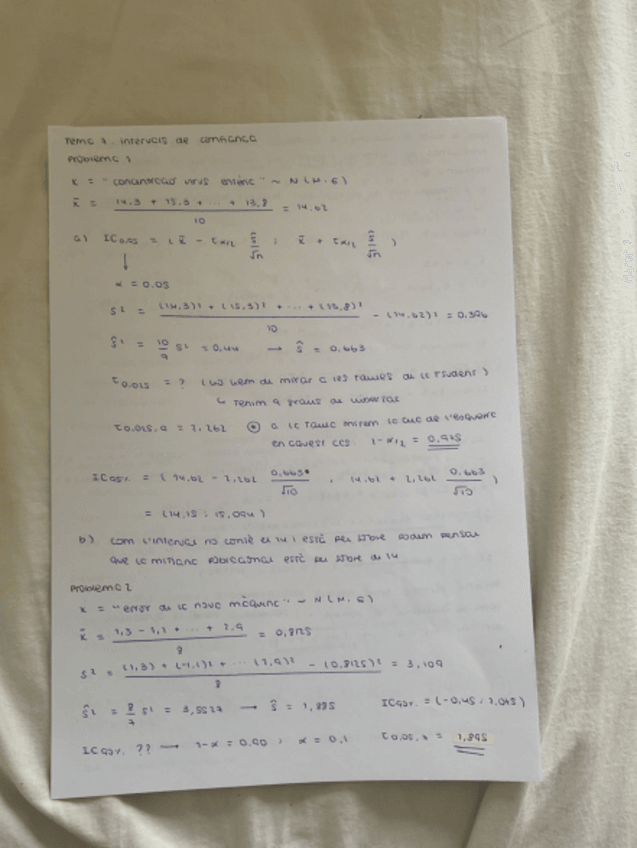 Tema 7. intervals de confiança
Problema 1
x = "concentració virus " ~ N(μ, σ)
x̄ = (14,3 + 15,3 + ... + 13,8) / 10 = 14,62
a) IC0.05 = ( x̄ - tα/2 ŝ/√n ; x̄ + tα/2 ŝ/√n )
↓
α = 0.05
s² = ((14,3)² + (15,3)² + ... + (13,8)²) / 10 - (14,62)² = 0,396
ŝ² = 10/9 s² = 0,44 → ŝ = 0,663
t0,025 = ? (ho hem de mirar a les taules de la t student)
↳ tenim 9 graus de llibertat
t0.025,9 = 2,262 * a la taula mirem la de l'esquerra
en aquest cas 1-α/2 = 0,975
IC95% = ( 14,62 - 2,262 0,663/√10 , 14,62 + 2,262 0,663/√10 )
= (14,15 ; 15,094)
b) com l'interval no conté el 14 i està per sobre podem pensar
que la mitjana poblacional està per sobre de 14
Problema 2
x = "error de la nova màquina" ~ N(μ, σ)
x̄ = (1,3 - 1,1 + ... + 2,9) / 8 = 0,8125
s² = ((1,3) + (-1,1)² + ... (2,9)² - (0,8125)²) / 8 = 3,109
ŝ² = 8/7 s² = 3,5527 → ŝ = 1,885 IC90% = (-0,45 , 2,075)
IC90% ?? → 1-α = 0,90 ; α = 0,1 t0,05,7 = 1,895